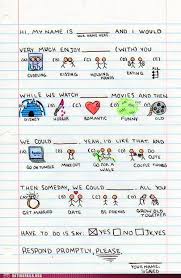 HI, MY NAME IS ____ AND I WOULD
YOUR NAME HERE
VERY MUCH ENJOY ____ (WITH) YOU
(A) (B) (C) (D)
CUDDLING KISSING HOLDING HANDS EATING
WHILE WE WATCH ____ MOVIES. AND THEN
(A) (B) (C) (D) (E)
DISNEY HORROR ROMANTIC FUNNY OLD
WE COULD ____. YEAH, I'D LIKE THAT. AND
(A) (B) (C) (D)
GO ON TUMBLR MAKEOUT GO FOR A WALK COUPLE THINGS
THEN SOMEDAY, WE COULD ____ ALL YOU
(A) (B) (C) (D)
GET MARRIED DATE BE FRIENDS GROW OLD TOGETHER
HAVE TO DO IS SAY: YES NO YES
RESPOND PROMPTLY, PLEASE.
YOUR NAME,
SIGNED